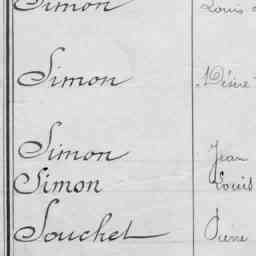 Simon Louis
Simon Désiré
Simon Jean
Simon Louis
Souchet Pierre